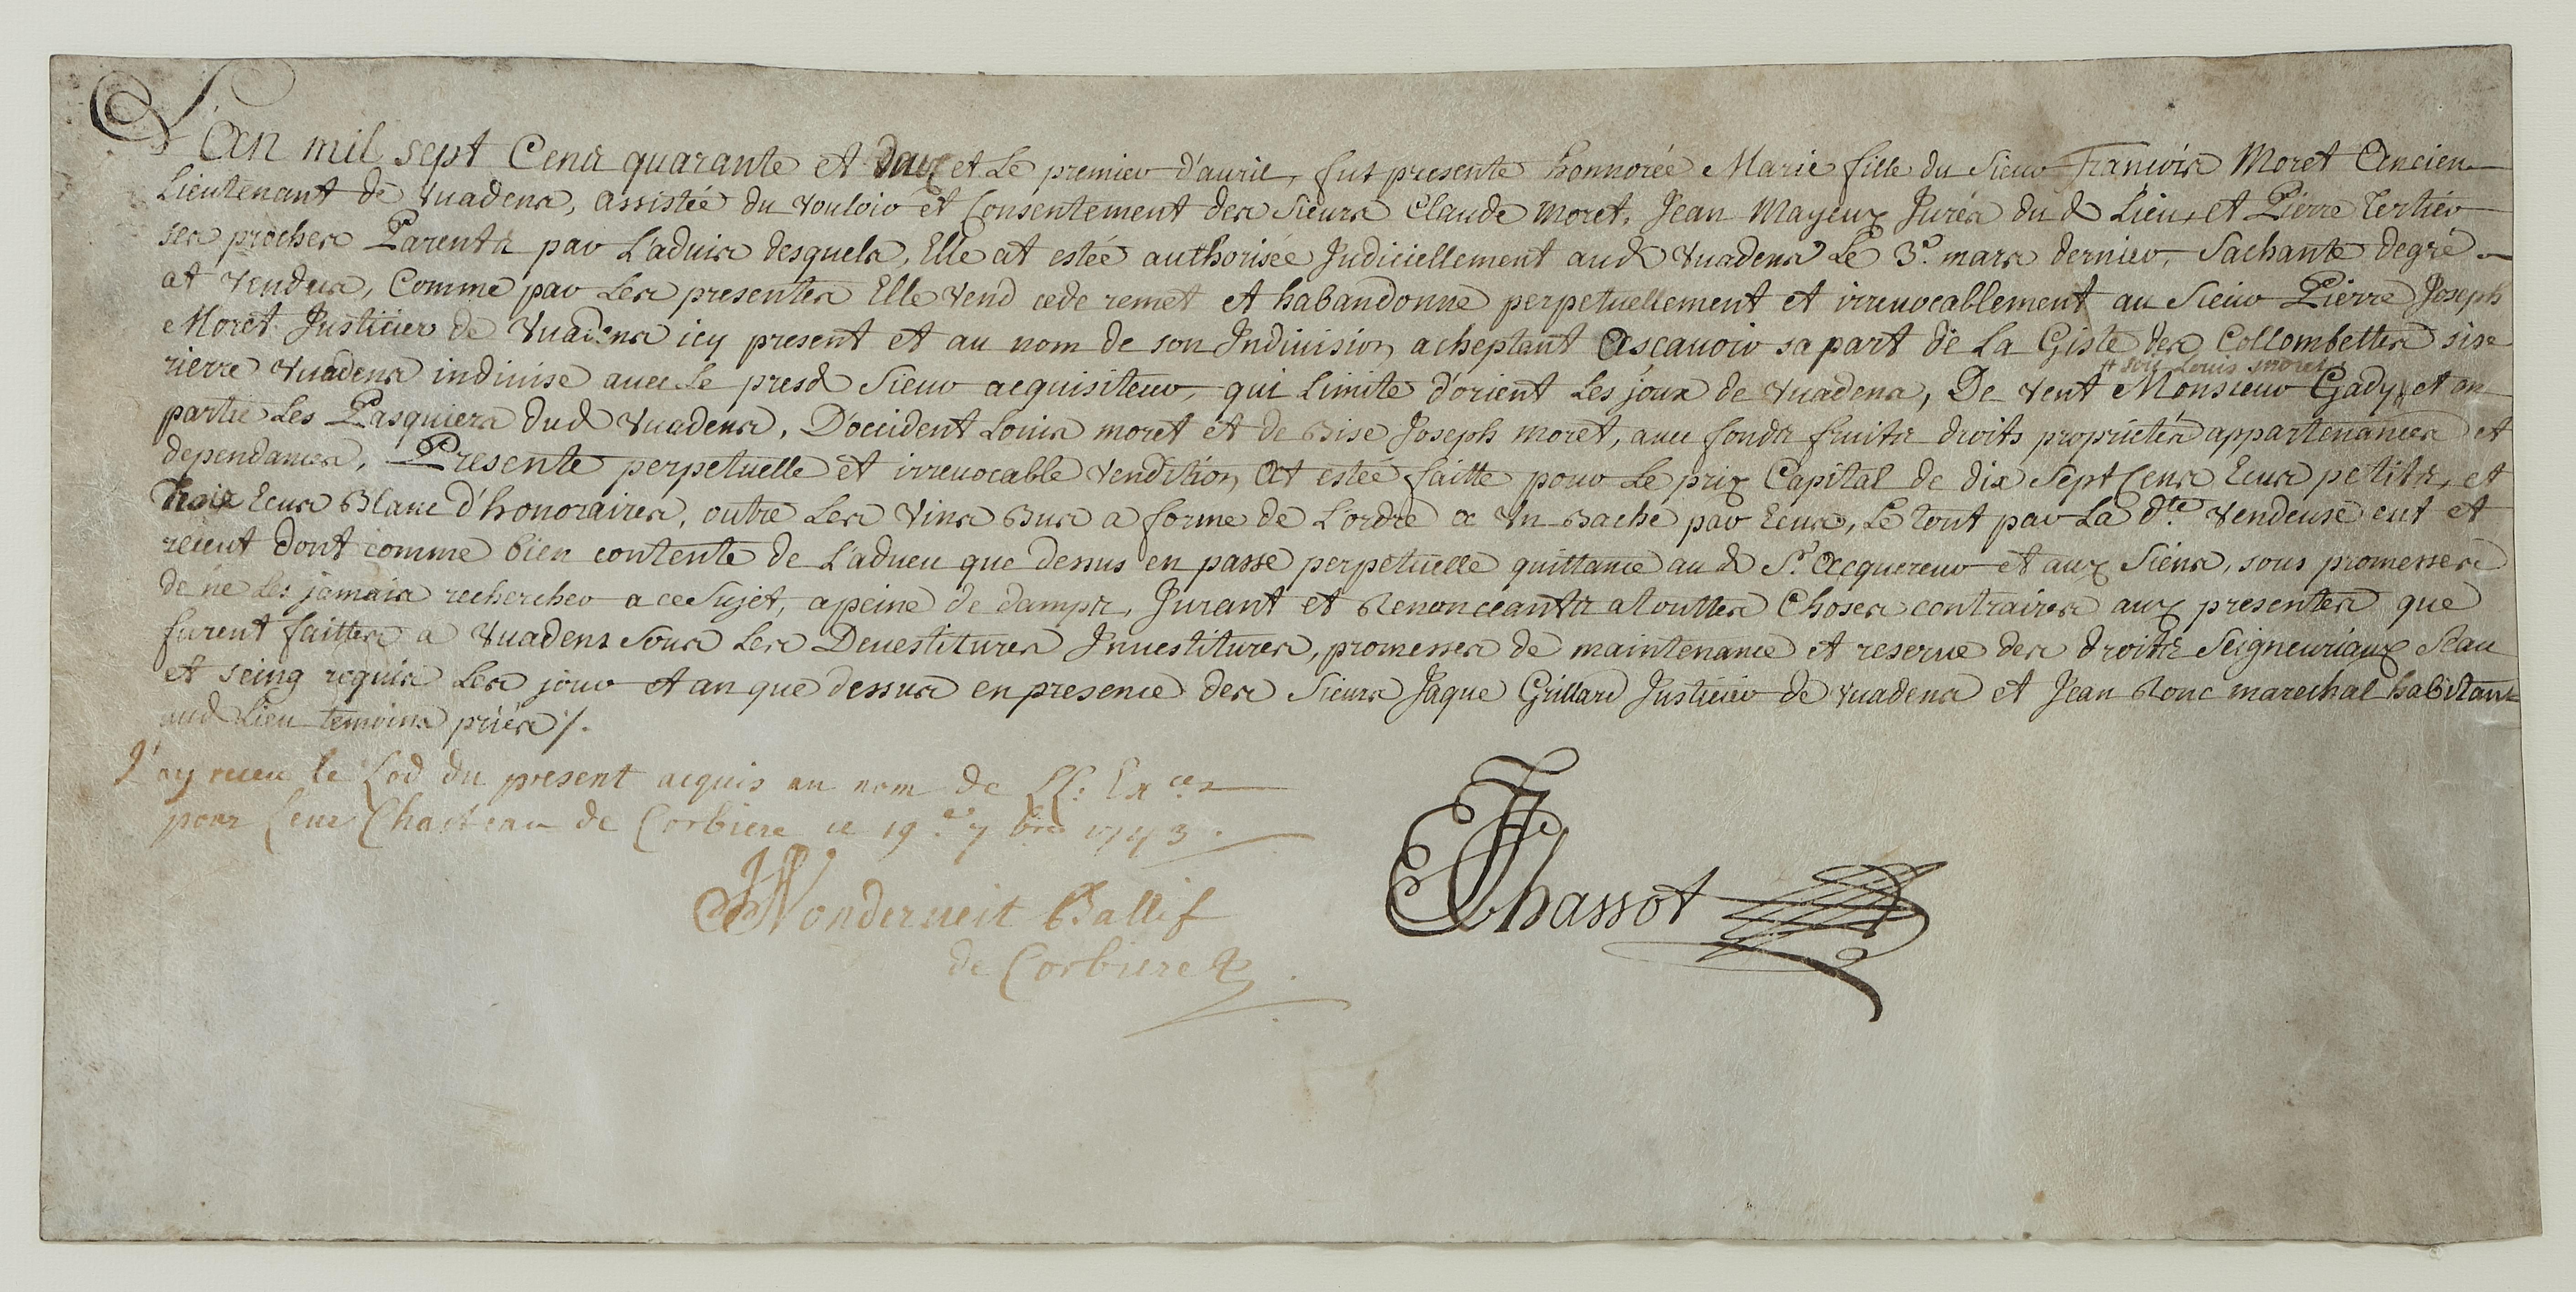 L'an mil sept Cents quarante et deux et Le premier d'auril, fut presente honnorée Marie fille du Sieur Francois Moret Ancien
Lieutenant de Vuadens, assistée du vouloir et Consentement des Sieurs Claude Moret, Jean Mayeux Jurés dud Lieu, et Pierre Tertier
ses proches Parents par L'aduis desquels, Elle at estée authorisée Judiciellement aud Vuadens Le 3e. mars dernier, Sachante degré
at Vendus, Comme par Les presentes Elle Vend cede remet et habandonne perpetuellement et irreuocablement au Sieur Pierre Joseph
Moret Justicier de Vuadens icy present et au nom de son Indiuision acheptant Ascauoir sa part de La Giste des Collombettes sise
rierre Vuadens indiuise auec Le presd Sieur acquisiteur, qui Limite d'orient Les joux de Vuadens, De Vent Monsieur Gady et en
# Louis moret
partie Les Pasquiers dud Vuadens, D'occident Louis moret et de Bise Joseph moret, auec fonds fruits droits proprietés appartenances et
dependances, Presente perpetuelle et irreuocable Vendition At estée faitte pour Le prix Capital de dix Sept Cens Ecus petits, et
trois Ecus Blanc d'honoraires, outre Les Vins Bus a forme de L'ordre a Un Bache par Ecus, Le tout par La dte Vendeuse eut et
receut dont comme bien contente de L'adueu que dessus en passe perpetuelle quittance aud Sr. Acquereur et aux Siens, sous promesses
de ne Les jamais rechercher a ce Sujet, a peine de damps, Jurant et Renonceants a touttes Choses contraires aux presentes que
furent faittes a Vuadens Sous Les Deuestitures Inuestitures, promesses de maintenance et reserue des droits Seigneuriaux Seau
et seing requis Les jour et an que dessus en presence des Sieurs Jaque Grillard Justicier de Vuadens et Jean Rouc marechal habitant
aud Lieu temoins priés /.
J'ay receu le Lod du present acquis au nom de LL: Exces
pour Leur Chasteau de Corbiere ce 19e 7bre 1743.
Wonderueit Ballif
de Corbiere
Chassot